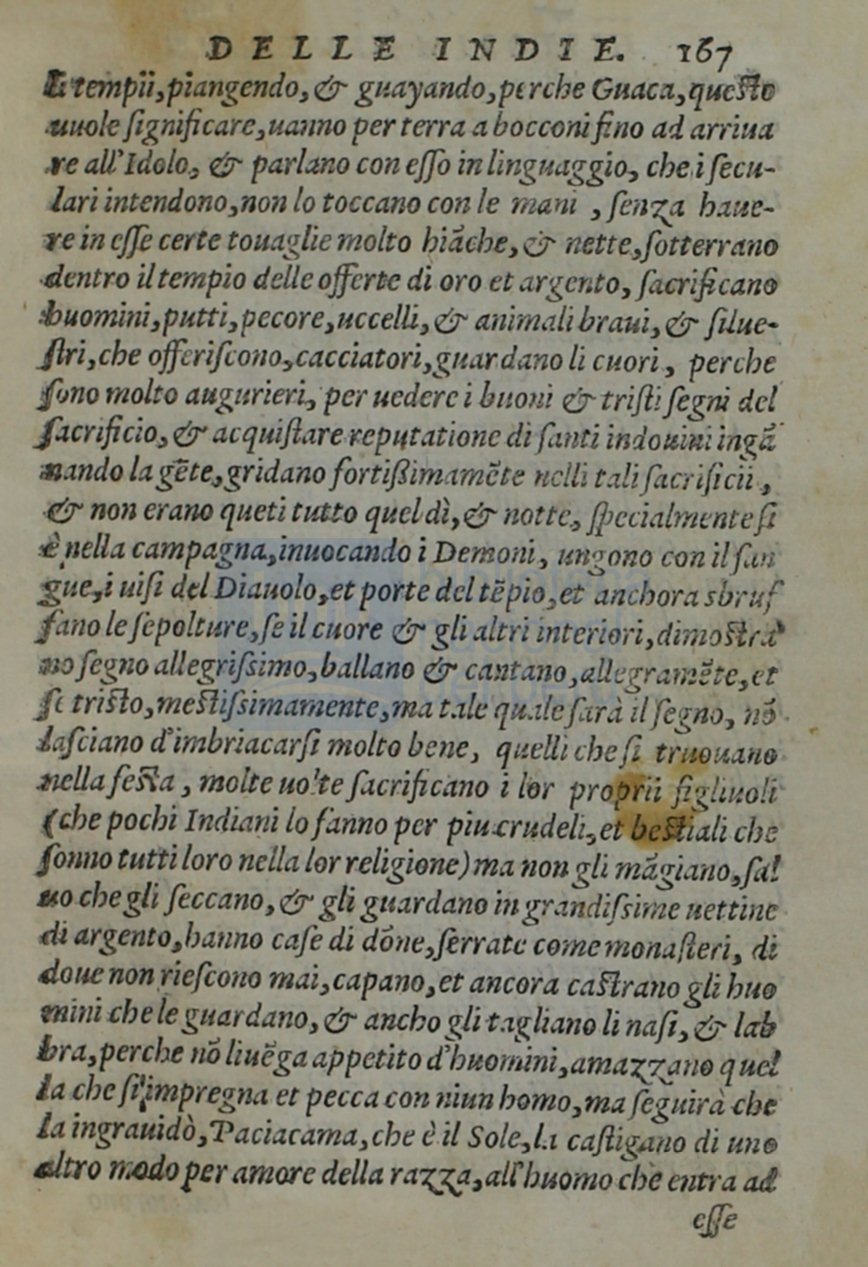 DELLE INDIE. 167
li tempii, piangendo, & guayando, perche Guaca, questo
uuole ſignificare, uanno per terra a bocconi fino ad arriua
re all'Idolo, & parlano con eſſo in linguaggio, che i ſecu-
lari intendono, non lo toccano con le mani, ſenza haue-
re in eſſe certe touaglie molto biāche, & nette, ſotterrano
dentro il tempio delle offerte di oro et argento, ſacrificano
huomini, putti, pecore, uccelli, & animali braui, & ſilue-
ſtri, che offeriſcono, cacciatori, guardano li cuori, perche
ſono molto augurieri, per uedere i buoni & triſti ſegni del
ſacrificio, & acquiſtare reputatione di ſanti indouini ingā
nando la gēte, gridano fortiſſimamēte nelli tali ſacrificii,
& non erano queti tutto quel dì, & notte, ſpecialmente ſi
è nella campagna, inuocando i Demoni, ungono con il ſan
gue, i uiſi del Diauolo, et porte del tēpio, et anchora sbruf
fano le ſepolture, ſe il cuore & gli altri interiori, dimoſtrā
no ſegno allegriſsimo, ballano & cantano, allegramēte, et
ſe triſto, meſtiſsimamente, ma tale quale ſarà il ſegno, nō
laſciano d'imbriacarſi molto bene, quelli che ſi truouano
nella feſta, molte uolte ſacrificano i lor proprii figliuoli
(che pochi Indiani lo fanno per piu crudeli, et beſtiali che
ſonno tutti loro nella lor religione) ma non gli māgiano, ſal
uo che gli ſeccano, & gli guardano in grandiſsime uettine
di argento, hanno caſe di dōne, ſerrate come monaſteri, di
doue non rieſcono mai, capano, et ancora caſtrano gli huo
mini che le guardano, & ancho gli tagliano li naſi, & lab
bra, perche nō li uēga appetito d'huomini, amazzano quel
la che ſi impregna et pecca con niun homo, ma ſeguirà che
la ingrauidò, Paciacama, che è il Sole, la caſtigano di uno
altro modo per amore della razza, all'huomo che entra ad
eſſe